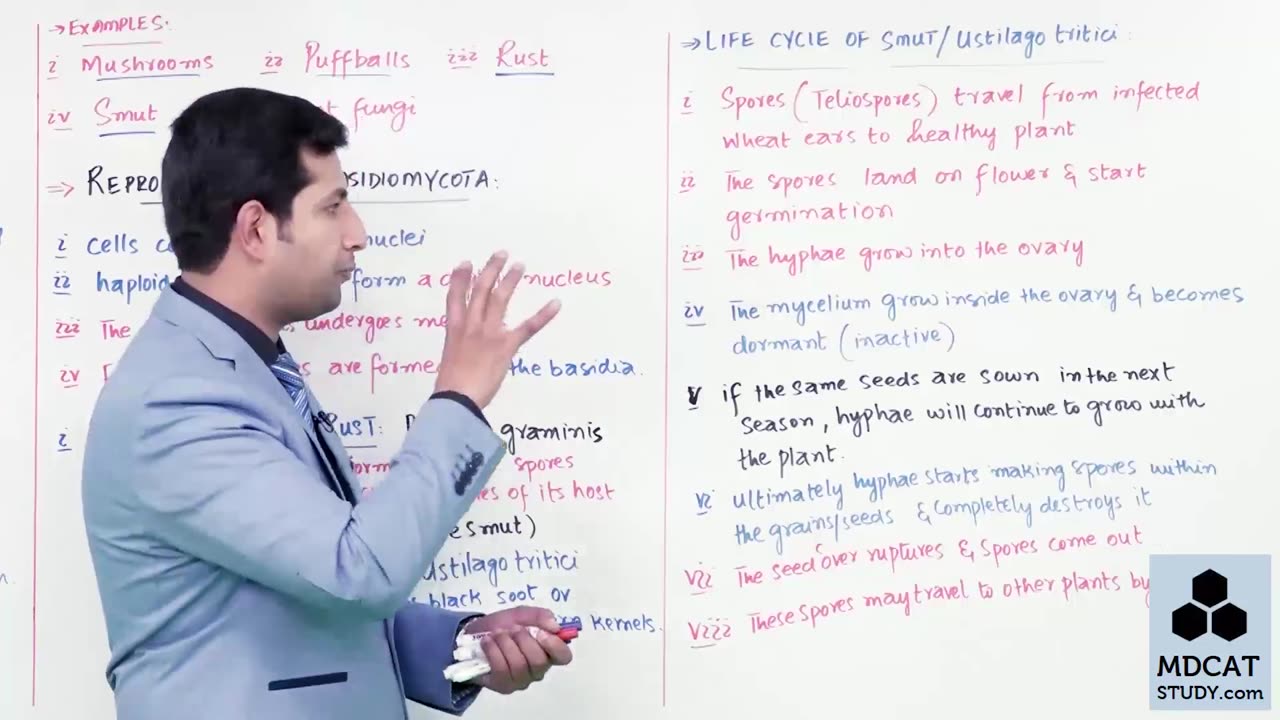 → EXAMPLES:
i Mushrooms ii Puffballs iii Rust
iv Smut fungi
⇒ REPRO SIDIOMYCOTA:
i cells nuclei
ii haploid form a nucleus
iii The undergoes
iv are forme the basidia.
i RUST: graminis
spores
of its host
Smut)
ustilago tritici
black soot or
kernels.
⇒ LIFE CYCLE OF Smut/Ustilago tritici:
i Spores (Teliospores) travel from infected
wheat ears to healthy plant
ii The spores land on flower & start
germination
iii The hyphae grow into the ovary
iv The mycelium grow inside the ovary & becomes
dormant (inactive)
v if the same seeds are sown in the next
season, hyphae will continue to grow with
the plant.
vi ultimately hyphae starts making spores within
the grains/seeds & completely destroys it
vii The seed over ruptures & spores come out
viii These spores may travel to other plants by
MDCAT
STUDY.com